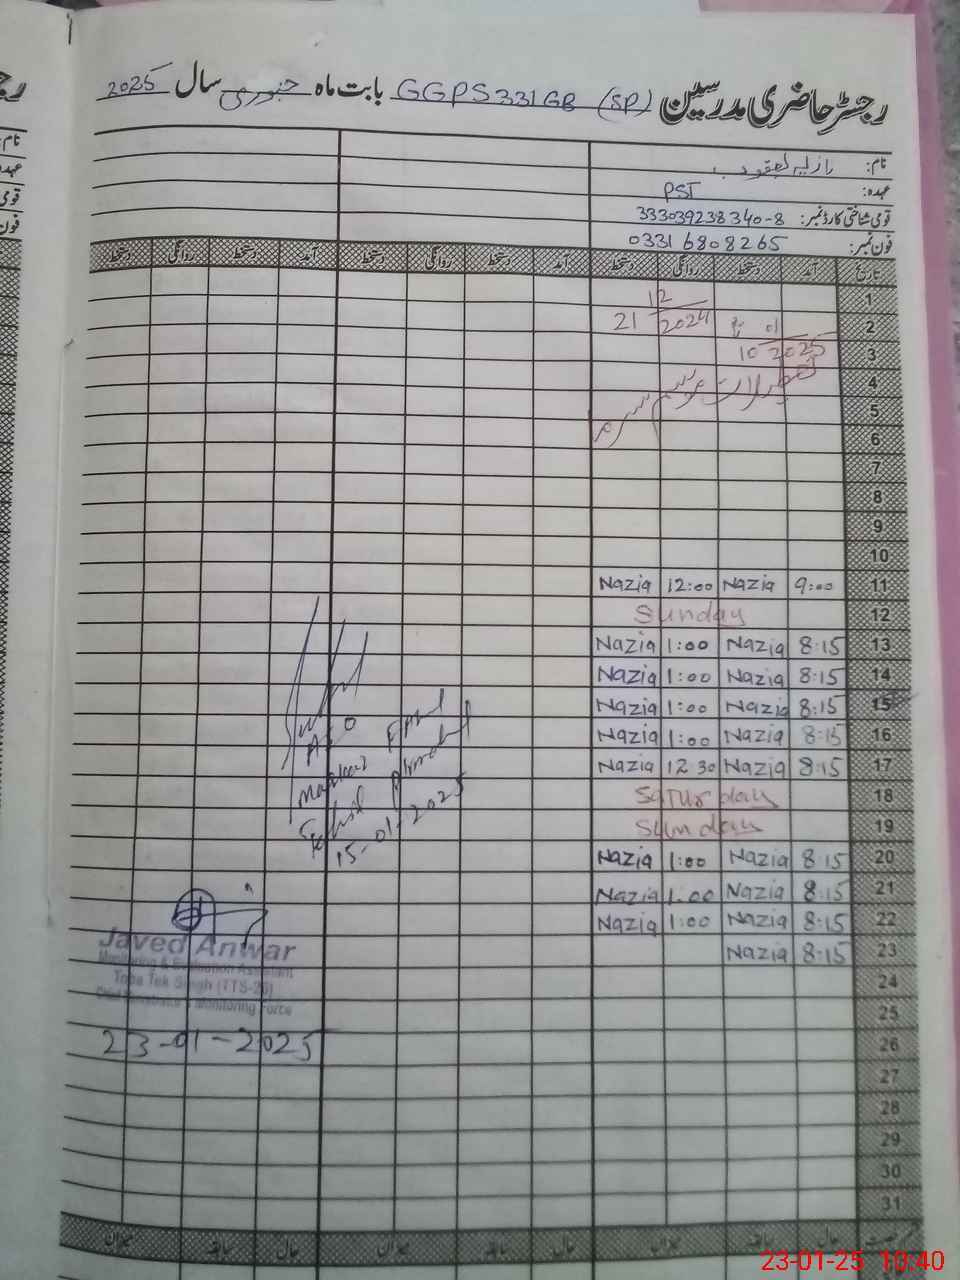 رجسٹر حاضری مدرسین GGPS 331 GB (SP) بابت ماہ جنوری سال 2025
نام:
عہدہ: PST
قومی شناختی کارڈ نمبر: 333039238340-8
فون نمبر: 03316808265
تاریخ آمد دستخط روانگی دستخط آمد دستخط روانگی دستخط آمد دستخط روانگی دستخط
1 12
2 21 2024 01
3 10 2025
4 تعطیلات موسم
5 سرما
6
7
8
9
10
11 9:00 Nazia 12:00 Nazia
12 Sunday
13 8:15 Nazia 1:00 Nazia
14 8:15 Nazia 1:00 Nazia
15 8:15 Nazia 1:00 Nazia
16 8:15 Nazia 1:00 Nazia
17 8:15 Nazia 12:30 Nazia
18 Saturday
19 Sunday
20 8:15 Nazia 1:00 Nazia
21 8:15 Nazia 1:00 Nazia
22 8:15 Nazia 1:00 Nazia
23 8:15 Nazia
24
25
26
27
28
29
30
31
AEO
15-01-2025
Javed Anwar
Monitoring & Evaluation Assistant
Toba Tek Singh (TTS-26)
Monitoring Force
23-01-2025
حال سابقہ میزان حال سابقہ میزان حال سابقہ میزان
23-01-25 10:40